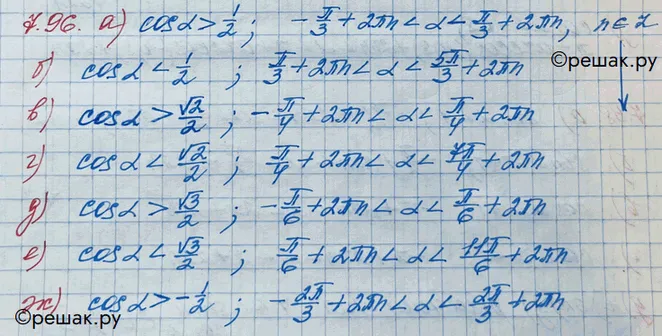 7.96. а) cosα > 1/2 ; -π/3 + 2πn < α < π/3 + 2πn, n ∈ Z
©решак.ру
б) cosα < 1/2 ; π/3 + 2πn < α < 5π/3 + 2πn
в) cosα > √2/2 ; -π/4 + 2πn < α < π/4 + 2πn
г) cosα < √2/2 ; π/4 + 2πn < α < 7π/4 + 2πn
д) cosα > √3/2 ; -π/6 + 2πn < α < π/6 + 2πn
е) cosα < √3/2 ; π/6 + 2πn < α < 11π/6 + 2πn
ж) cosα > -1/2 ; -2π/3 + 2πn < α < 2π/3 + 2πn
©решак.ру